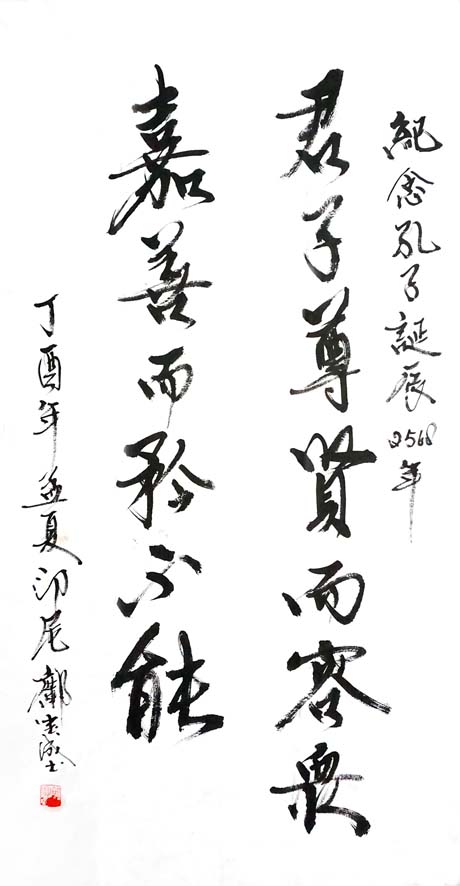 紀念孔子誕辰2568年
君子尊賢而容衆
嘉善而矜不能
丁酉年孟夏印尼鄺